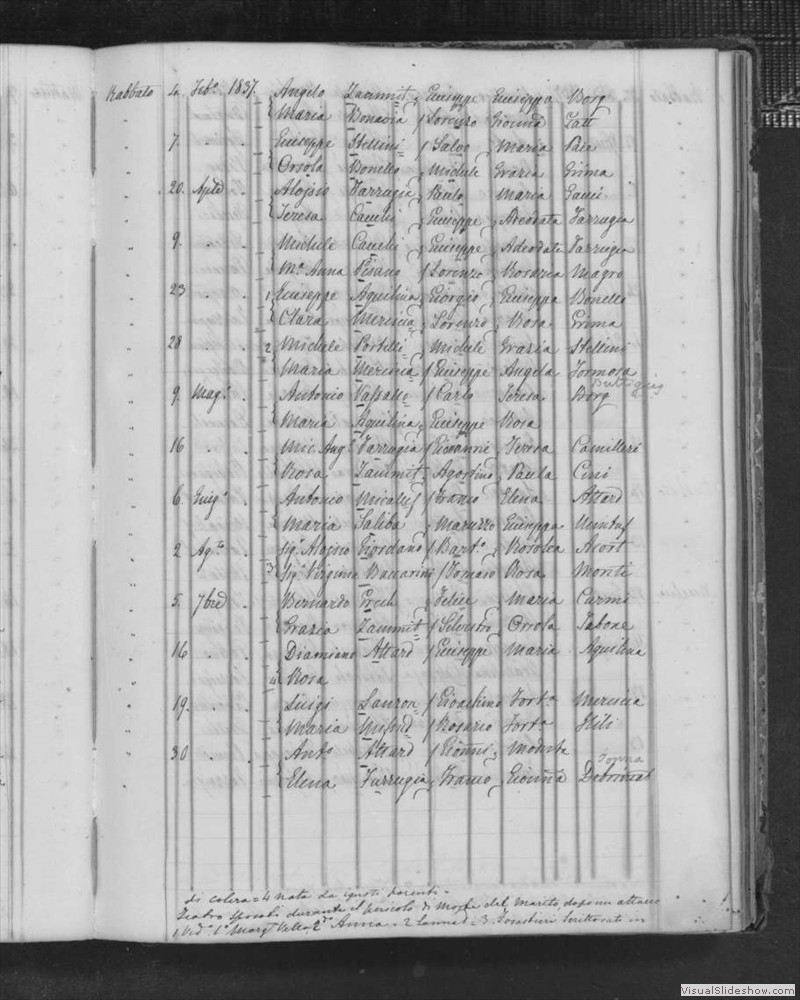 Rabbato 4. Feb.º 1837. Angelo Zammit Giuseppe Giuseppa Borg
Maria Bonavia Lorenzo Gioannᵃ Gatt
7. Giuseppe Stellini Salvo Maria Pace
Orsola Bonello Michele Grazia Grima
20. Aple Alojsio Farrugia Paulo Maria Gauci
Teresa Cauchi Giuseppe Adeodata Farrugia
9. Michele Cauchi Giuseppe Adeodata Farrugia
Mᵃ Anna Pisano Lorenzo Rosaria Magro
23 1 Giuseppe Aquilina Giorgio Giuseppa Bonello
Clara Mercieca Lorenzo Rosa Grima
28 2 Michele Portelli Michele Grazia Stellini
Maria Mercieca Giuseppe Angela Formosa
Buttigieg
9. Magº Antonio Vassallo Carlo Teresa Borg
Maria Aquilina Giuseppe Rosa
16 Mic. Angº Farrugia Giovanni Teresa Camilleri
Rosa Zammit Agostino Paula Cini
6. Giugº Antonio Micallef Franco Elena Attard
Maria Saliba Maruzzo Giuseppa
2 Agᵗᵒ Sigʳ Alojsio Giordano Bartº Rosolea
3 Sigᵃ Virginia Baccarini Tomaso Rosa Monti
5. 7bre Bernardo Grech Felice Maria
Grazia Zammit Silvestro Orsola Tabone
16 Diamiano Attard Giuseppe Maria Aquilina
4 Rosa
19. Luigi Sauron Gioachino Fortᵃ Mercieca
Maria Mifsud Rosario Fortᵃ Hili
30 Antº Attard Gionni
Tonna
Elena Farrugia Franco Gionna Debrincat
di colera = 4 nata da ignoti parenti =
Teatro sposati durante il pericolo di morte del marito dopo un attacco
1 Vedᵃ Vella 2 Anna = 3. Forastieri Scritturati in